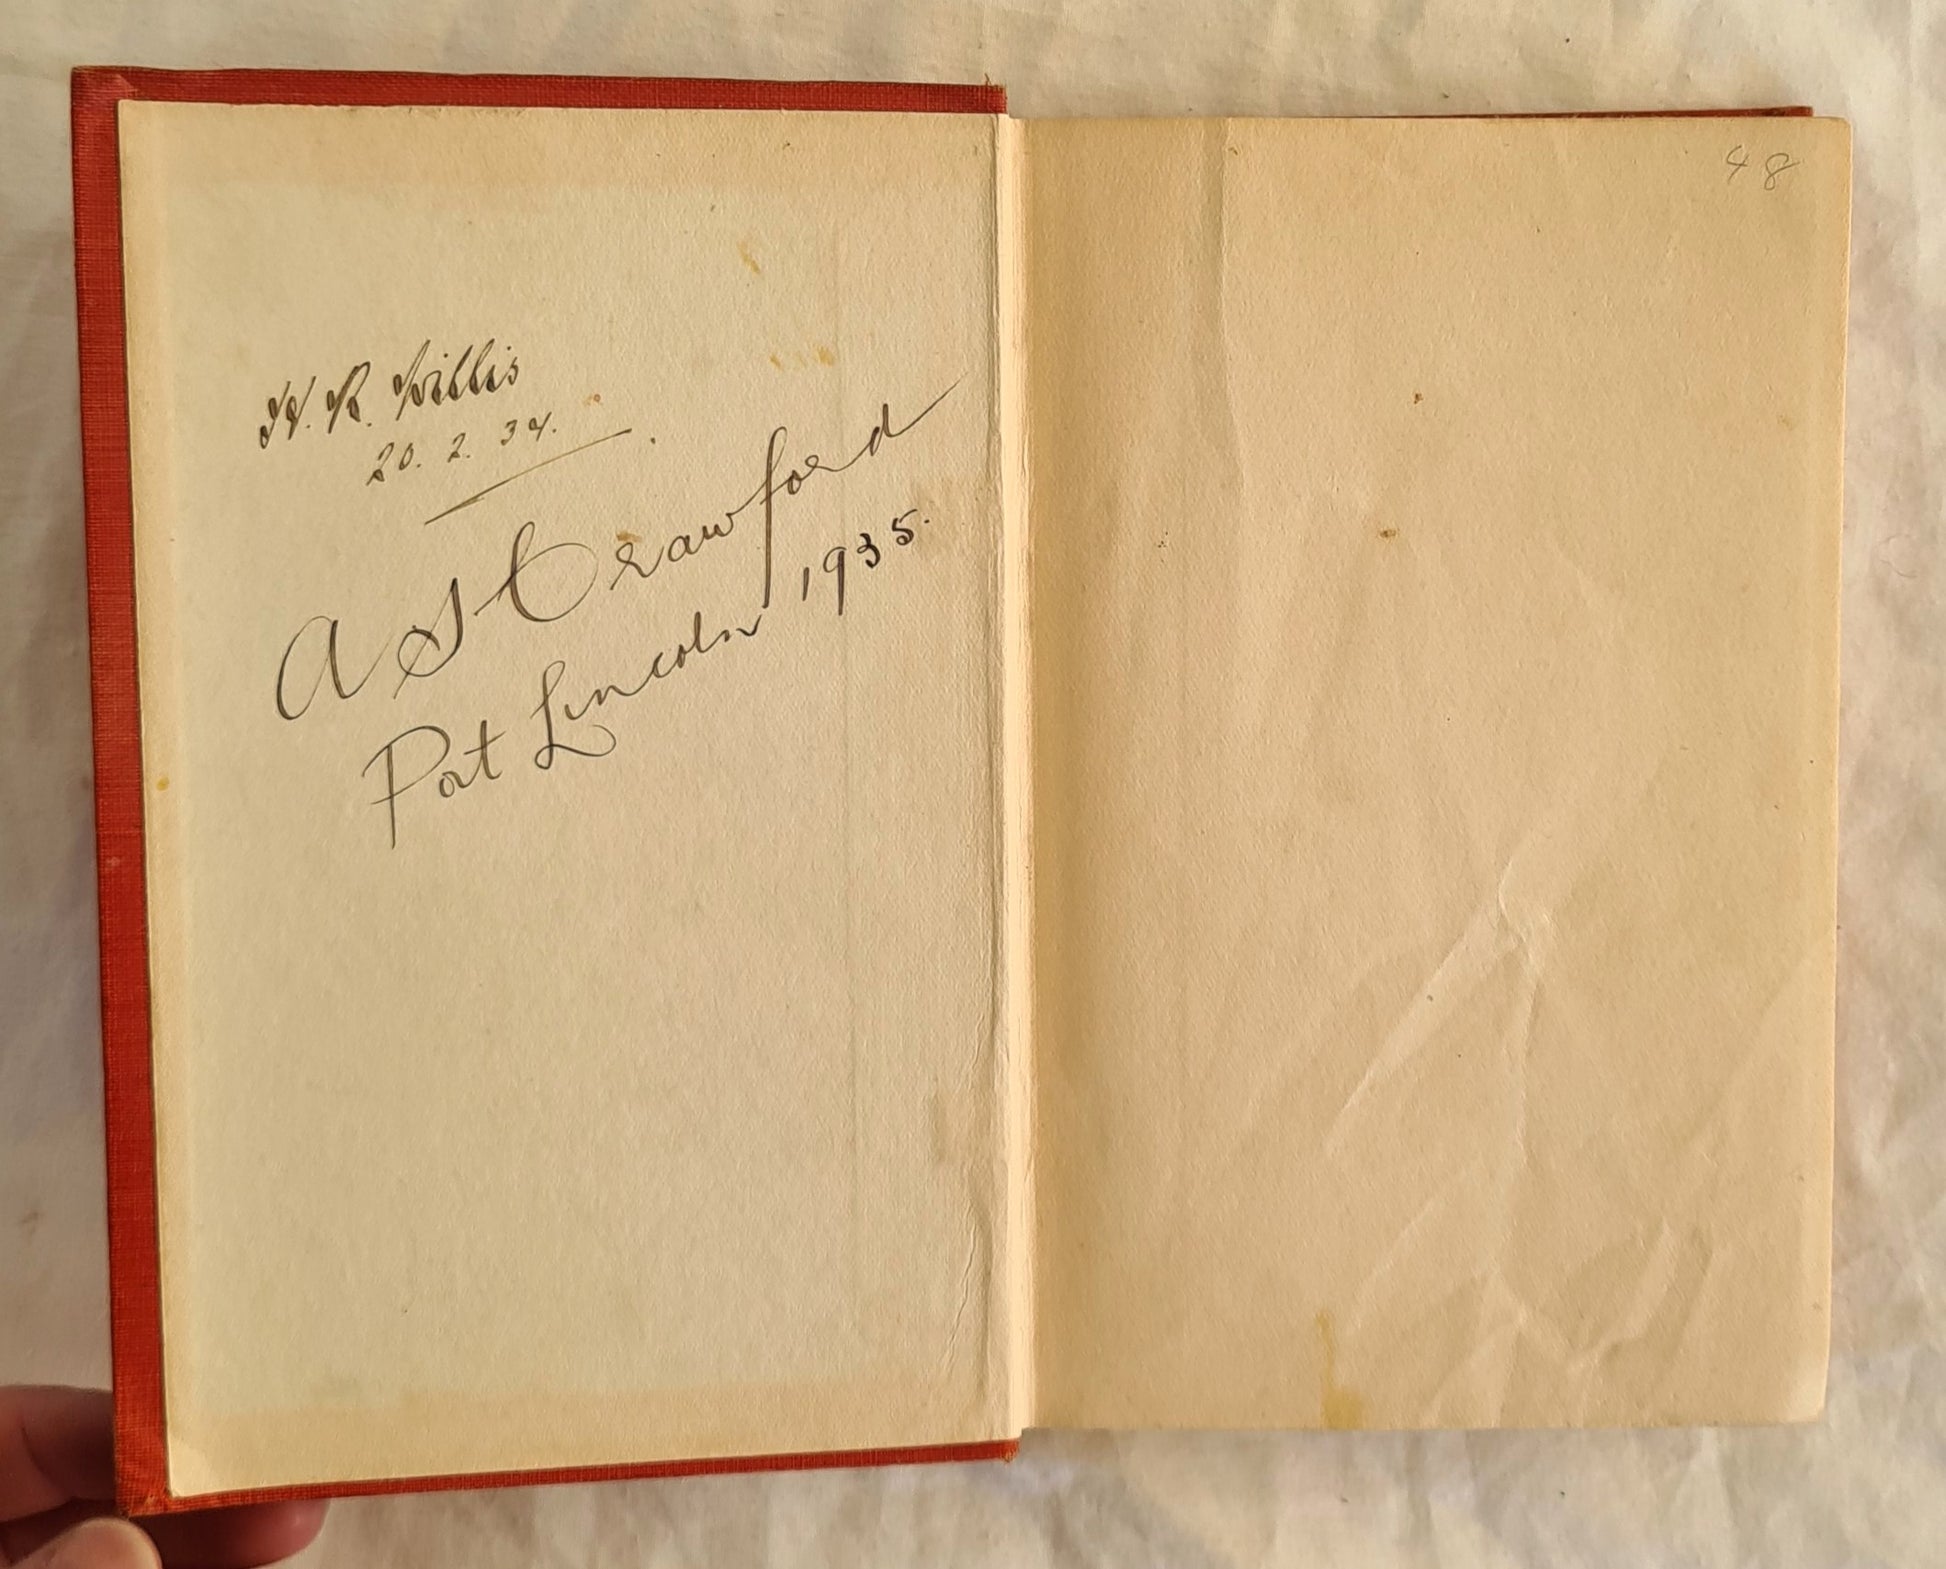 W. R. Willis
20. 2. 34.
A S Crawford
Port Lincoln 1935.
48